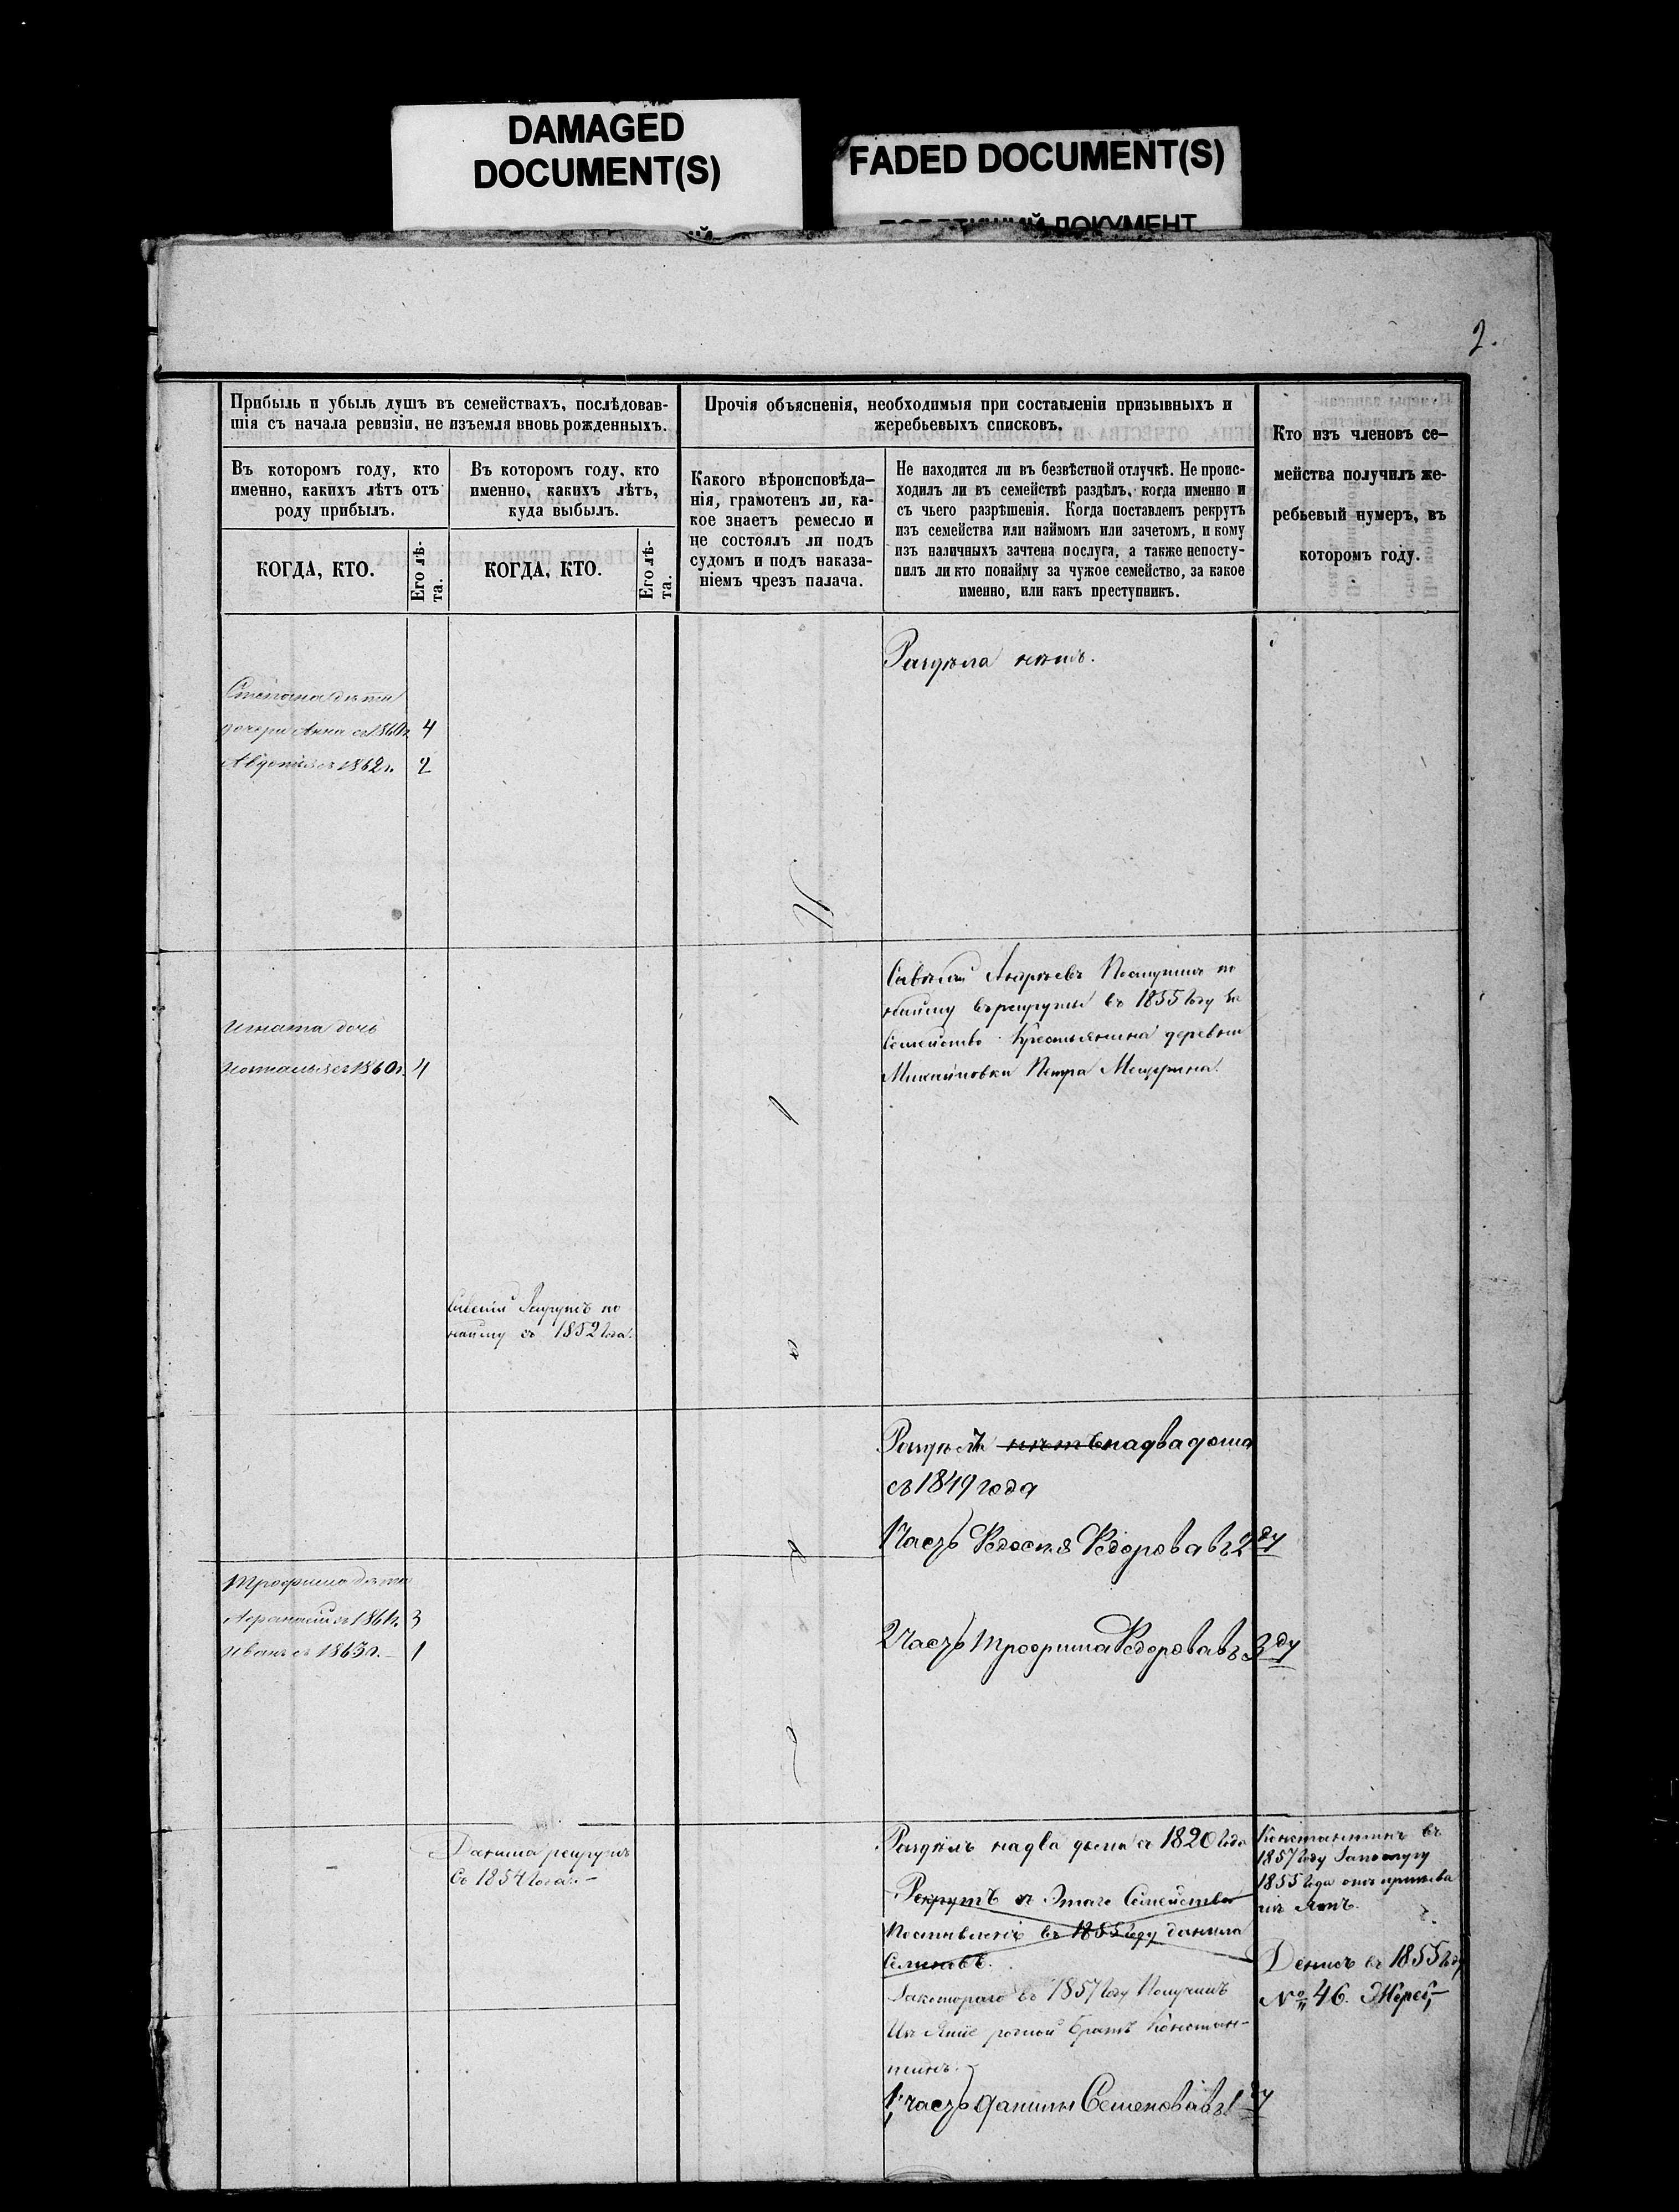 DAMAGED
DOCUMENT(S)
FADED DOCUMENT(S)
ДОКУМЕНТ
2.
Прибыль и убыль душъ въ семействахъ, послѣдовав-
шія съ начала ревизіи, не изъемля вновь рожденныхъ.
Въ которомъ году, кто
именно, какихъ лѣтъ отъ
роду прибылъ.
КОГДА, КТО.
Его лѣ-
та.
Въ которомъ году, кто
именно, какихъ лѣтъ,
куда выбылъ.
КОГДА, КТО.
Его лѣ-
та.
Прочія объясненія, необходимыя при составленіи призывныхъ и
жеребьевыхъ списковъ.
Какого вѣроисповѣда-
нія, грамотенъ ли, ка-
кое знаетъ ремесло и
не состоялъ ли подъ
судомъ и подъ наказа-
ніемъ чрезъ палача.
Не находится ли въ безвѣстной отлучкѣ. Не проис-
ходилъ ли въ семействѣ раздѣлъ, когда именно и
съ чьего разрѣшенія. Когда поставленъ рекрутъ
изъ семейства или наймомъ или зачетомъ, и кому
изъ наличныхъ зачтена послуга, а также непосту-
пилъ ли кто понайму за чужое семейство, за какое
именно, или какъ преступникъ.
Кто изъ членовъ се-
мейства получилъ же-
ребьевый нумеръ, въ
которомъ году.
Раздѣла нѣтъ.
Степана дѣти
дочери Анна съ 1860г. 4
Авдотія съ 1862г. 2
Савелій Андреевъ Поступилъ по
найму въ рекруты въ 1855 году за
Семейство Крестьянина деревни
Михайловки Петра
Игната дочь
Наталья съ 1860г. 4
Савелій Рекрутъ по
найму съ 1852 года.
Раздѣлъ нѣтъ на два дома
съ 1849 года
1 часть Федорова въ 2ду
Трофима дѣти
Афанасій съ 1861г. 3
Иванъ съ 1863г. 1
2 часть Трофима Федорова въ 3ду
Данила рекрутъ
Съ 1854 года.
Раздѣлъ на два дома съ 1820 года
Рекрутъ съ Этаго Семейства
Поставленъ въ 1855 году данила
Семеновъ.
За котораго въ 1857 году Получилъ
родной братъ Констан-
тинъ.
1 часть данилы Семенова въ 1ду
Константинъ въ
1857 году
1855 года
Денисъ въ 1855 году
№ 46. Жереб.